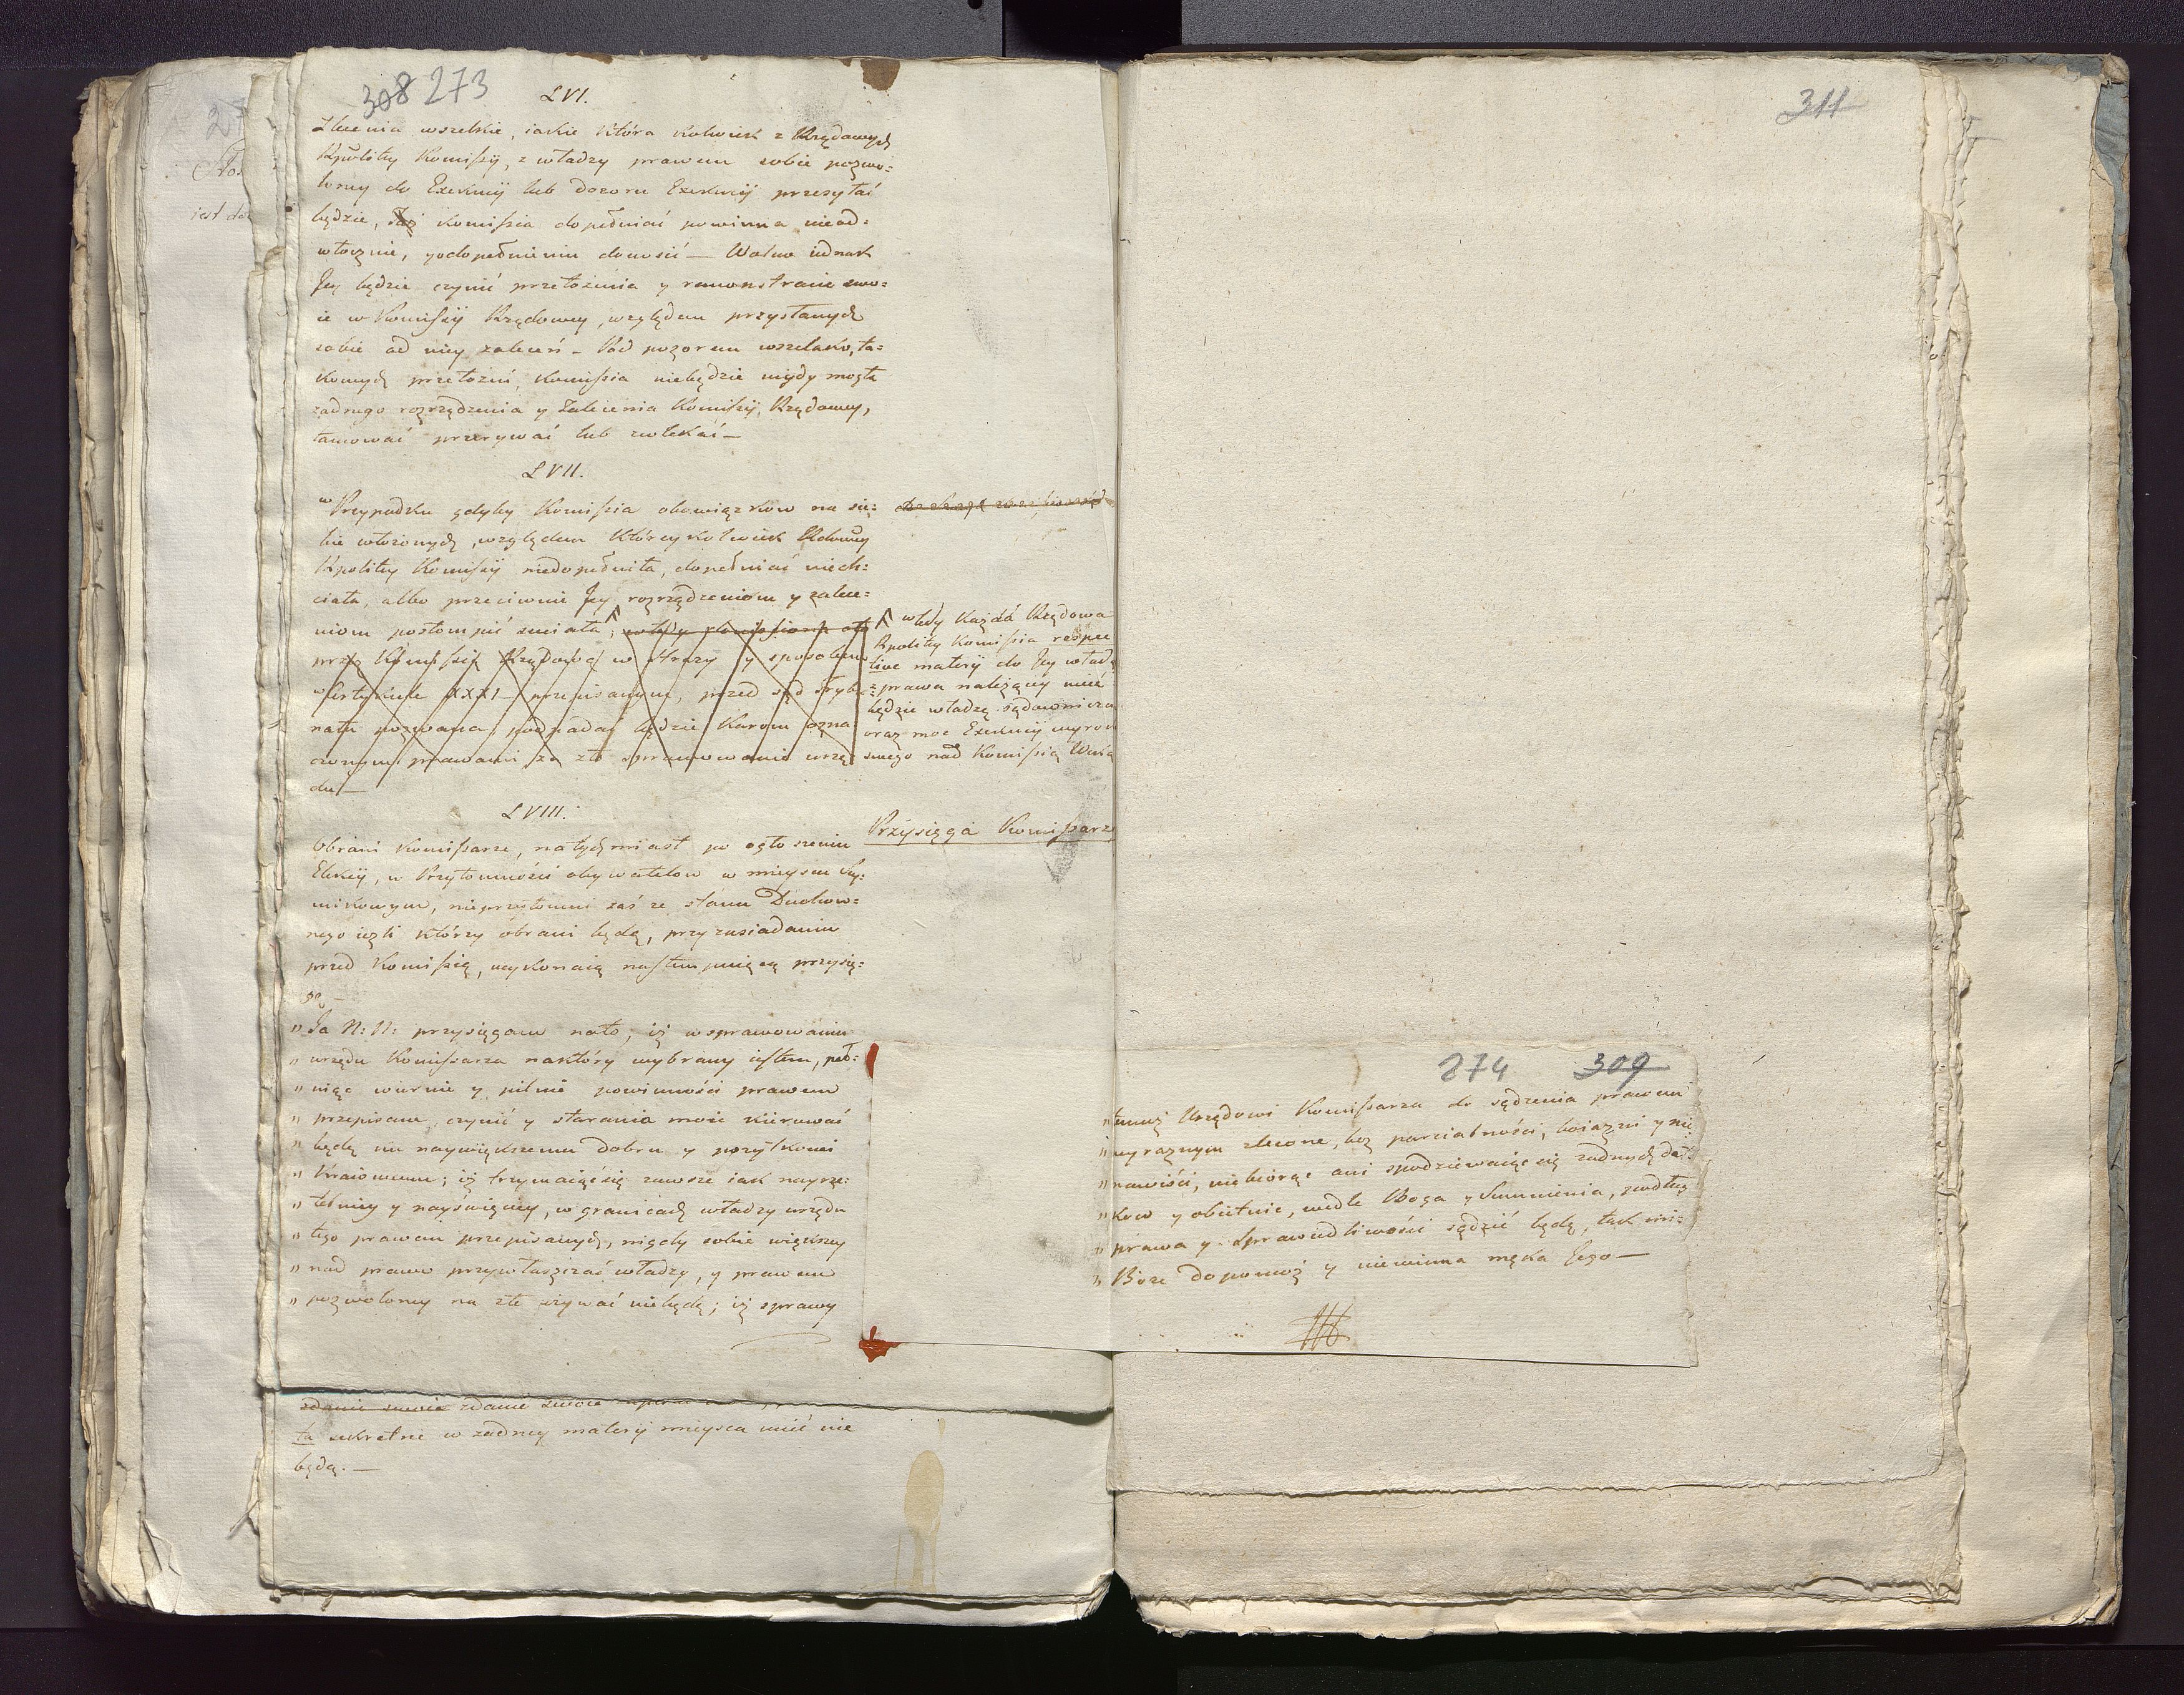 308 273
LVI.
Zlecenia wszelkie, iakie ktora kolwiek z Rządowych
Rzpolitey Komissÿi, z władzy prawem sobie pozwo=
loney do Exekucÿi lub dozoru Exekucÿi przesyłać
będzie, Komissia dopełniać powinna nieod=
włocznie, y o dopełnieniu donosić — Wolno iednak
Jey będzie czynić przełożenia y remonstracie swo=
ie w Komissÿi Rządowey, względem przysłanych
sobie od niey zaleceń — Pod pozorem wszelako, ta=
kowych przełożeń, Komissia niebędzie nigdy mogła
żadnego rozrządzenia y Zalecenia Komissÿi Rządowey,
tamować przerywać lub zwlekać —
LVII.
w Przypadku gdyby Komissia obowiązkow na sie=
bie włożonych, względem Któreykolwiek Rdowey
Rzpolitey Komissÿi niedopełniła, dopełniać niech=
ciała, albo przeciwnie Jey rozrządzeniom y zalece=
niom postompić smiała,
przez Komissią Rządową w Straży y sposobem
w Artykule XXXI przepisanym, przed sąd Trybu=
nału pozwana, podpadać będzie Karom ozna
czonym prawami za złe sprawowanie urzę
du —
Λ wtedy Każda Rządowa
Rzpolitey Komissia respec
tive materÿi do Jey władz
z prawa należącey mieć
będzie władzę sądowniczą
oraz moc Exekucÿi wyrok
swego nad Komissią Woia
LVIII.
Przysięga Komissarz
Obrani Komissarze, natychmiast po ogłoszeniu
Elekcÿi, w Przytomności obywatelow w mieyscu Sey=
mikowym, nieprzytomni zaś ze stanu Duchow=
nego ieżli którzy obrani będą, przy zasiadaniu
przed Komissią, wykonaią następuiącą przysię=
gę —
„ Ja N: N: przysięgam nato, iż w sprawowaniu
„ urzędu Komissarza naktóry wybrany iestem, peł=
„ niąc wiernie y pilnie powinności prawem
„ przepisane, czynić y starania moie kierować
„ będę ku naywiększemu dobru y pożytkowi
„ Kraiowemu; iż trzymaiąc się zawsze iak nayrze=
„ telniey y nayświęciey, w granicach władzy urzędu
„ tego prawem przepisanych, nigdy sobie większey
„ nad prawo przywłaszczać władzy, y prawem
„ pozwoloney na złe używać niebędę; iż sprawy
zdanie swoie zdanie swoie
ta sekretne w żadney materÿi mieysca mieć nie
będą. —
311
274 309
„ temuż Urzędowi Komissarza do sądzenia prawem
„ wyraznym zlecone, bez parcialności, boiazni y nie
„ nawiści, niebiorąc ani spodziewaiąc się żadnych dat=
„ kow y obietnic, wedle Boga y Sumnienia, podług
„ prawa y sprawiedliwości sądzić będę, tak mi
„ Boze dopomoż y niewinna męka Jego —